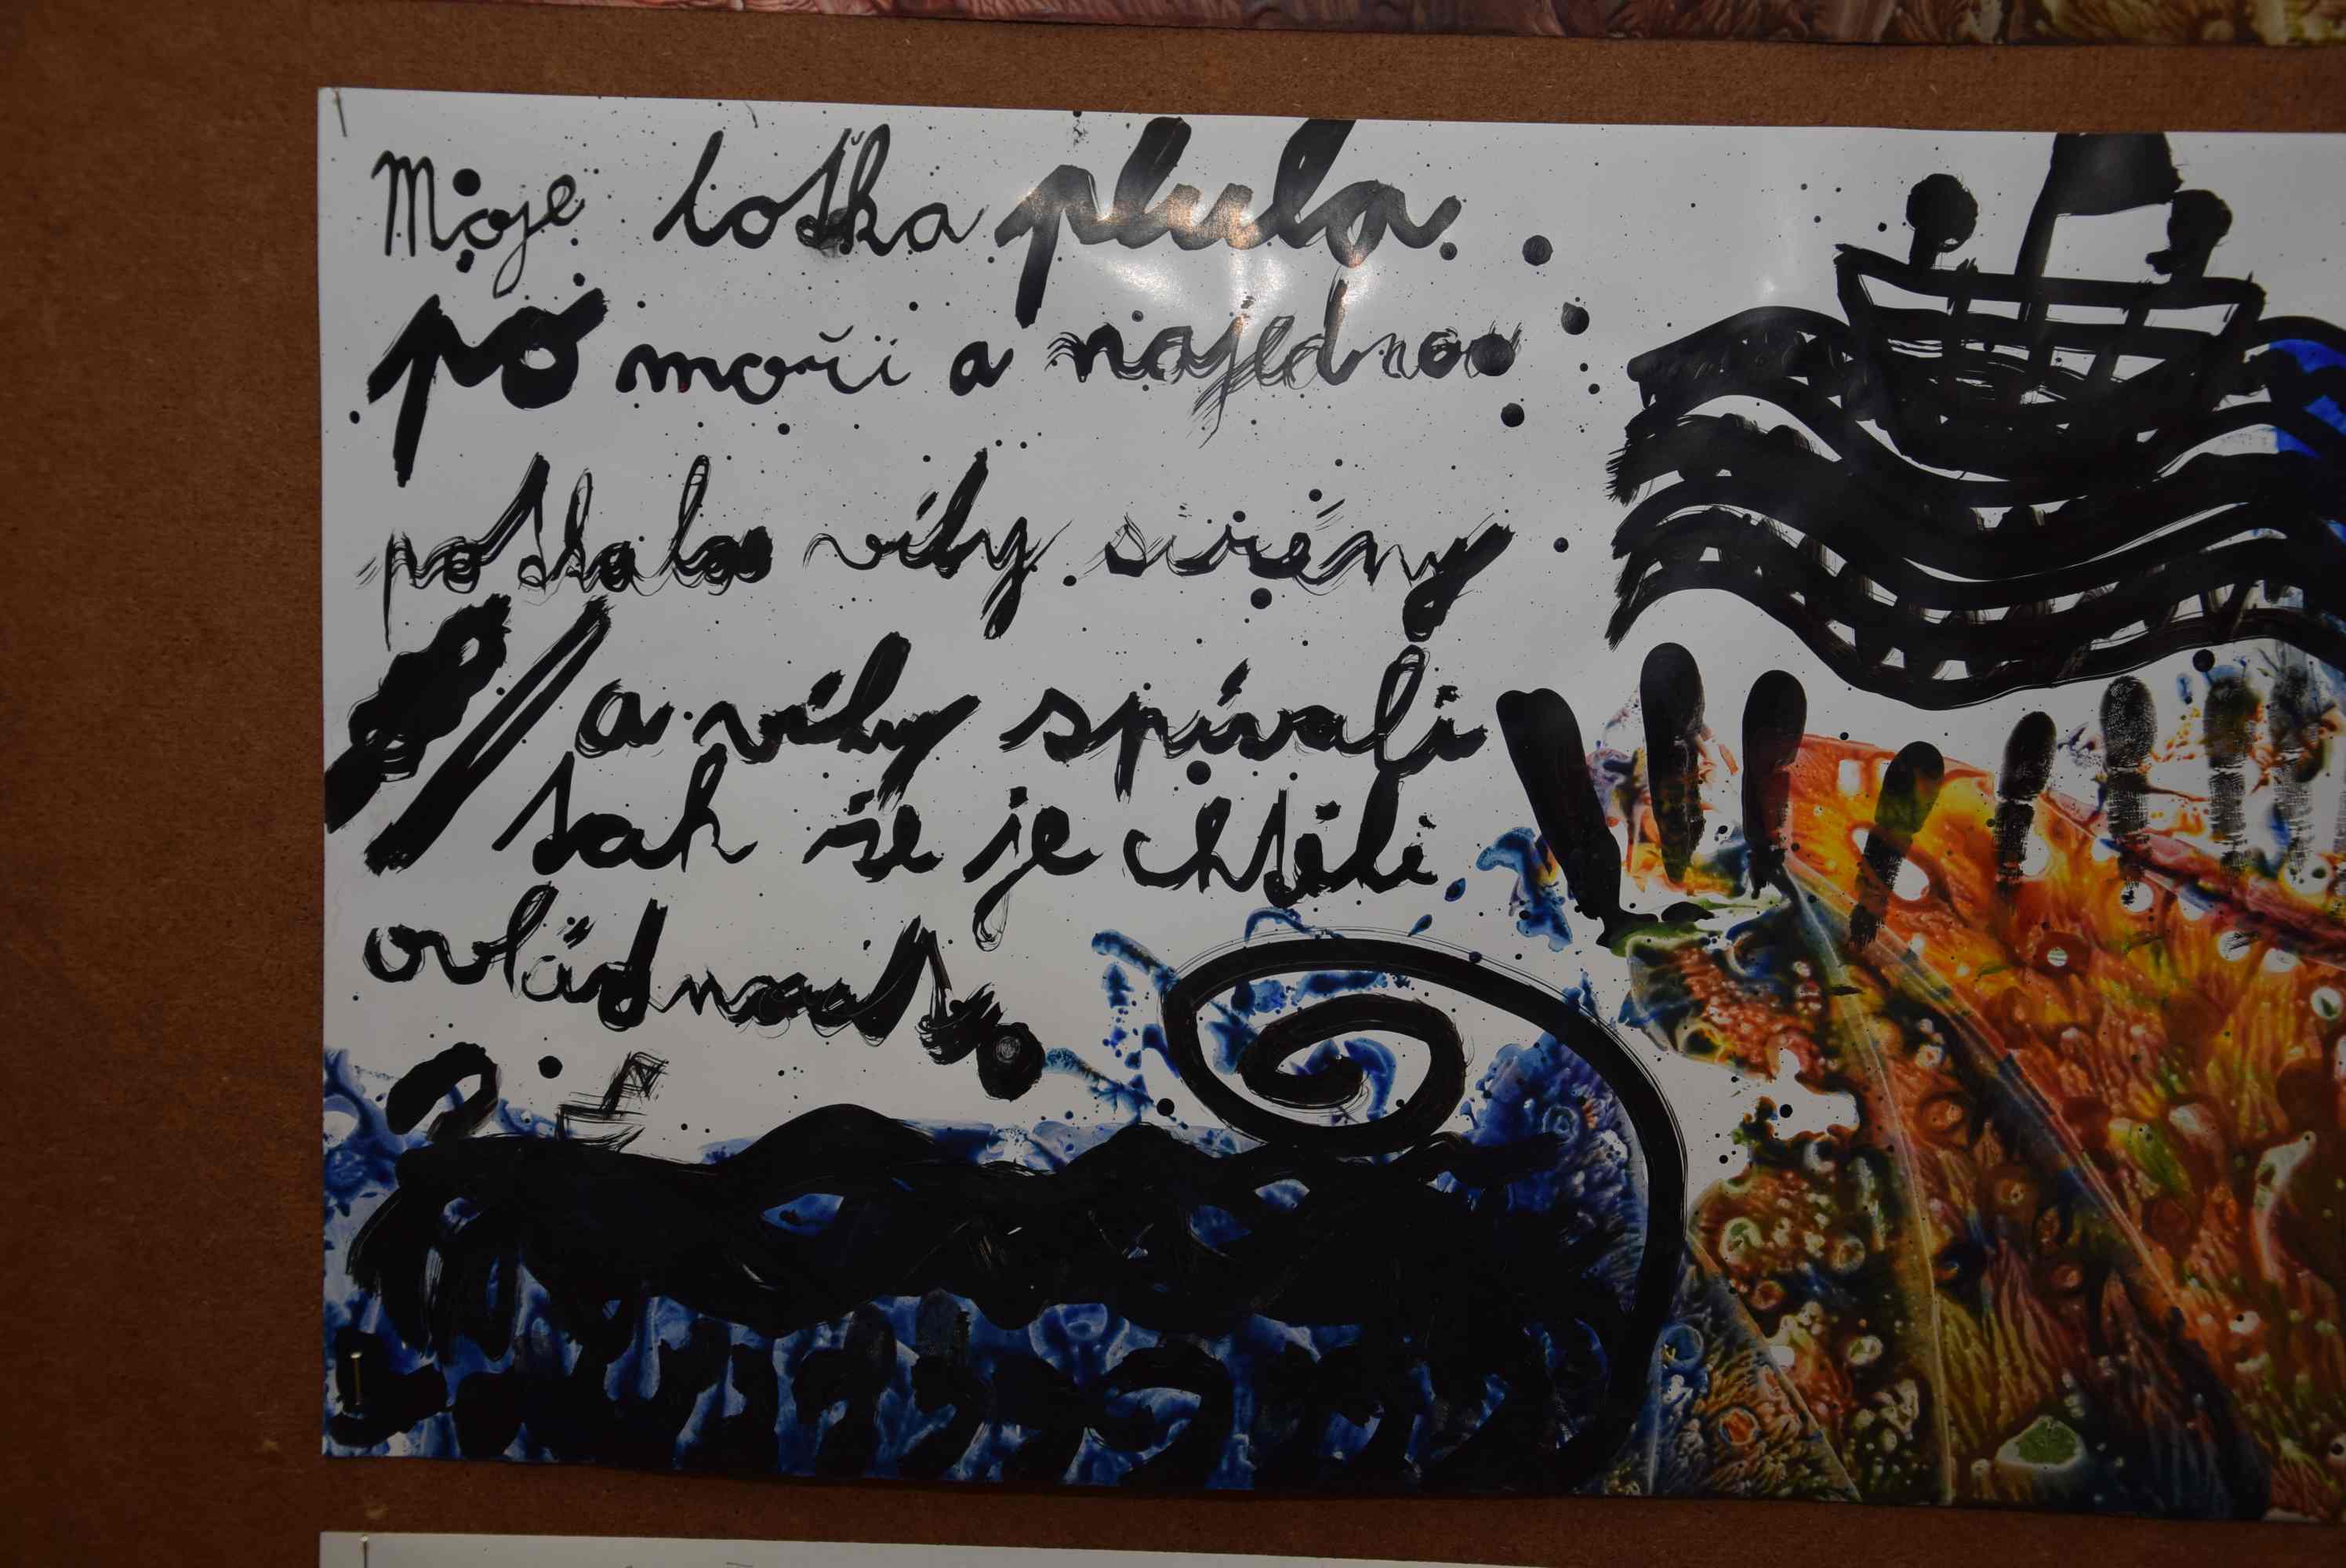 Moje loťka plula
po moři a najednou
potkala víly sirény
a víly spívali
tak že je chtěli
ovládnout.